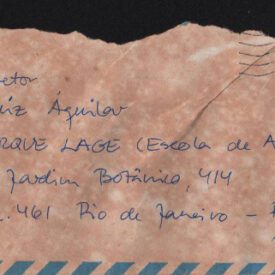 etor
iz Aguilar
RQUE LAGE (Escola de A
Jardim Botânico, 414
.461 Rio de Janeiro –